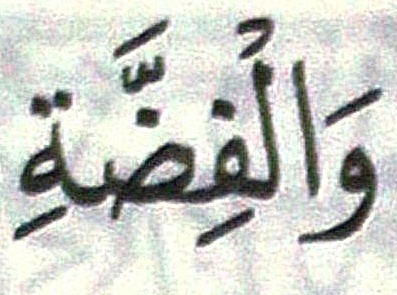 وَالْفِضَّةِ